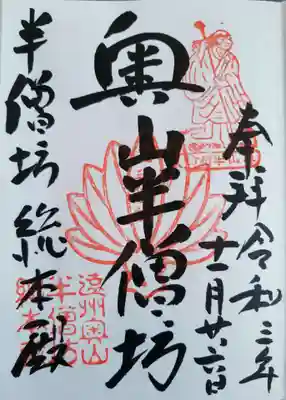 奉拝 令和三年
十一月廿六日
奥山半僧坊
半僧坊総本殿
遠州奥山
半僧坊